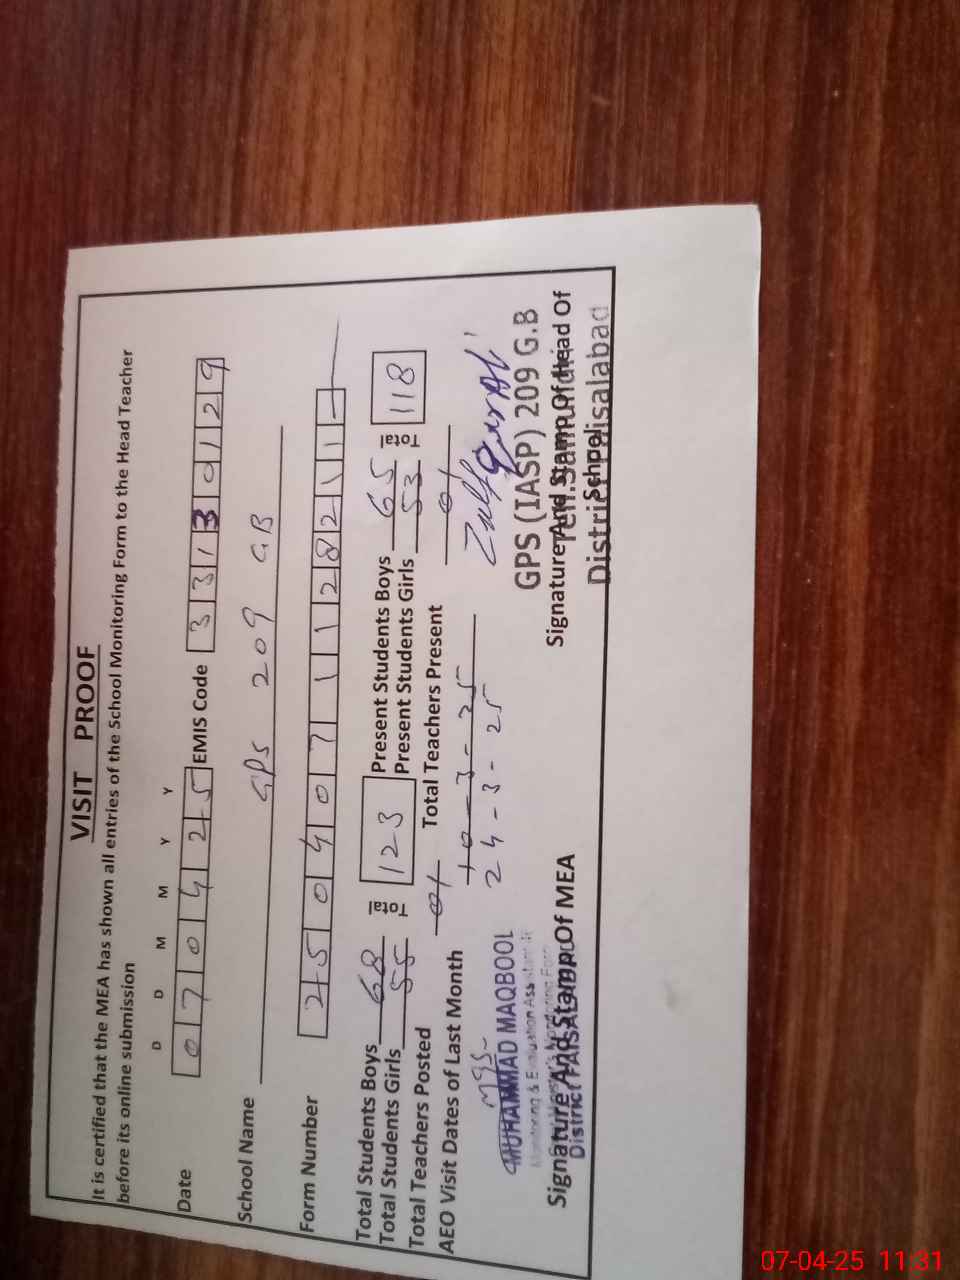 VISIT PROOF
It is certified that the MEA has shown all entries of the School Monitoring Form to the Head Teacher
before its online submission
D D M M Y Y
Date 070425 EMIS Code 33130129
School Name GPS 209 GB
Form Number 25040711282111
Total Students Boys 68 Total 123 Present Students Boys 65 Total 118
Total Students Girls 55 Present Students Girls 53
Total Teachers Posted 01 Total Teachers Present 01
AEO Visit Dates of Last Month 10-3-25
24-3-25
MUHAMMAD MAQBOOL
Monitoring & Evaluation Assistant
Monitoring Force
District FAISALABAD
Signature And Stamp Of MEA
GPS (IASP) 209 G.B
Teh. Samundri
District Faisalabad
Signature And Stamp Of Head Of
School
07-04-25 11:31